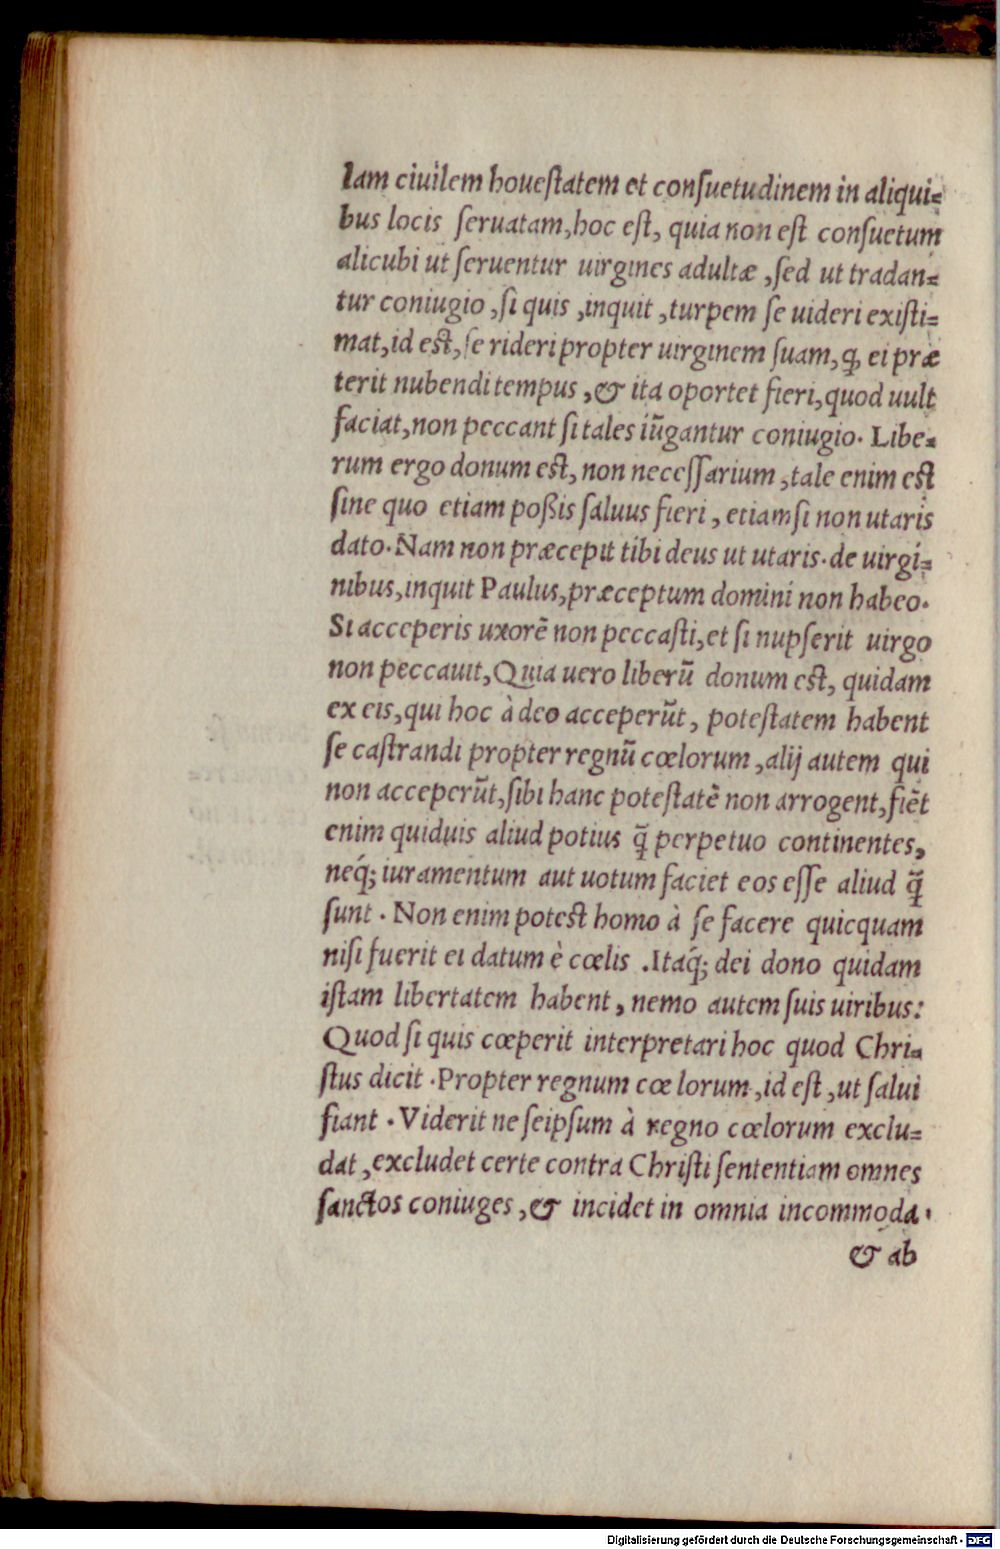 lam ciuilem houeſtatem et conſuetudinem in aliqui=
bus locis ſeruatam, hoc eſt, quia non eſt conſuetum
alicubi ut ſeruentur uirgines adultæ, ſed ut tradan=
tur coniugio, ſi quis, inquit, turpem ſe uideri exiſti=
mat, id eſt, ſe rideri propter uirginem ſuam, ꝙ ei præ
terit nubendi tempus, & ita oportet fieri, quod uult
faciat, non peccant ſi tales iũgantur coniugio. Libe=
rum ergo donum eſt, non neceſſarium, tale enim eſt
ſine quo etiam poßis ſaluus fieri, etiamſi non utaris
dato. Nam non præcepit tibi deus ut utaris. de uirgi=
nibus, inquit Paulus, præceptum domini non habeo.
Si acceperis uxorẽ non peccaſti, et ſi nupſerit uirgo
non peccauit, Quia uero liberũ donum eſt, quidam
ex eis, qui hoc à deo acceperũt, poteſtatem habent
ſe caſtrandi propter regnũ cœlorum, alij autem qui
non acceperũt, ſibi hanc poteſtatẽ non arrogent, fiẽt
enim quiduis aliud potius q̃ perpetuo continentes,
neq́; iuramentum aut uotum faciet eos eſſe aliud q̃
ſunt. Non enim poteſt homo à ſe facere quicquam
niſi fuerit ei datum è cœlis. Itaq́; dei dono quidam
iſtam libertatem habent, nemo autem ſuis uiribus:
Quod ſi quis cœperit interpretari hoc quod Chri=
ſtus dicit. Propter regnum cœ lorum, id eſt, ut ſalui
fiant. Viderit ne ſeipſum à regno cœlorum exclu=
dat, excludet certe contra Chriſti ſententiam omnes
ſanctos coniuges, & incidet in omnia incommoda.
& ab
Digitalisierung gefördert durch die Deutsche Forschungsgemeinschaft - DFG